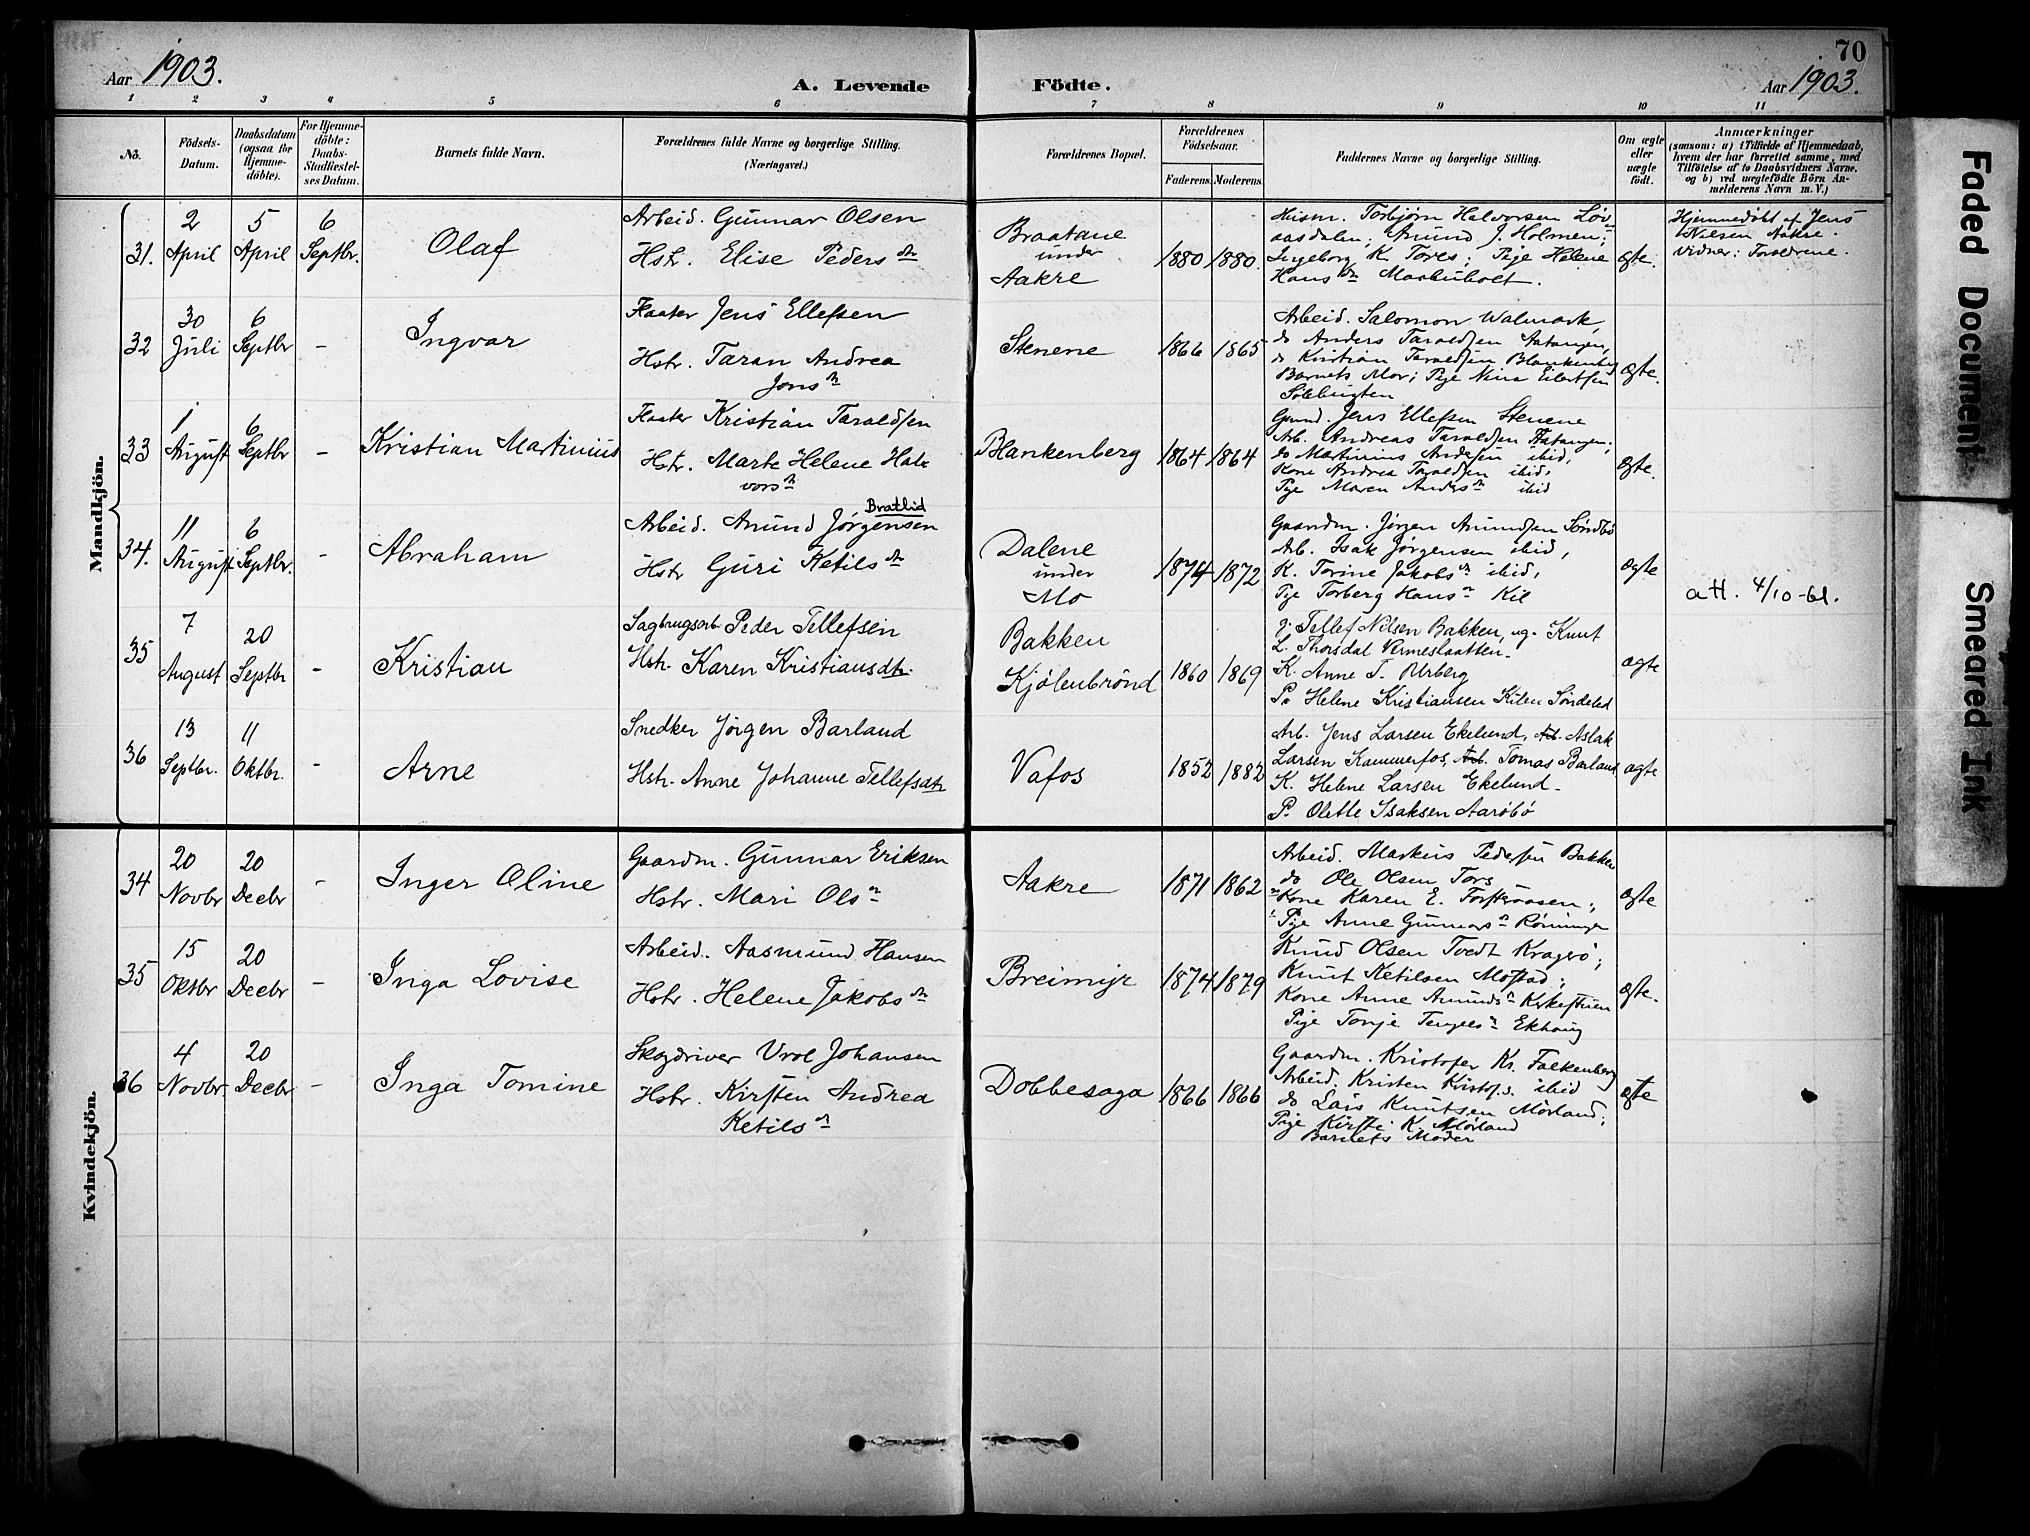 70
Aar 1903.
A. Levende Födte.
Aar 1903.
1 2 3 4 5 6 7 8 9 10 11
Nō.
Födsels-Datum.
Daabsdatum (ogsaa for Hjemme-döbte).
For Hjemme-döbte: Daabs-Stadfæstel-ses Datum.
Barnets fulde Navn.
Forældrenes fulde Navne og borgerlige Stilling. (Næringsvei.)
Forældrenes Bopæl.
Forældrenes Födselsaar.
Faderens. Moderens.
Faddernes Navne og borgerlige Stilling.
Om ægte eller uægte födt.
Anmærkninger
(saasom: a) i Tilfælde af Hjemmedaab, hvem der har forrettet samme, med Tilföielse af to Daabsvidners Navne. og b) ved uægtefödte Börn An-melderens Navn m. V.)
Mandkjön.
31. 2 April 5 April 6 Septbr. Olaf
Arbeid. Gunnar Olsen
Hstr. Elise Pedersdr
Braatane under Aakre
1880 1880
Husm. Torbjørn Halvorsen Løv
aasdalen; Anund J. Holmen;
Ingeborg K. Tores; Pige Helene
Hansdr
ægte.
Hjemmedøbt af Jens
Nielsen Aakre.
Vidner: Forældrene.
32 30 Juli 6 Septbr - Ingvar
Flaater Jens Ellefsen
Hstr. Taran Andrea
Jonsdr
Stenene
1866 1865
Arbeid. Salomon Walmark,
do Anders Taraldsen
do Kristian Taraldsen Blankenberg
Barnets Mor; Pige Nina Eilertsen
ægte.
33 1 August 6 Septbr - Kristian Martinius
Flaater Kristian Taraldsen
Hstr. Marte Helene Hal
vorsdr
Blankenberg
1864 1864
Jens Ellefsen Stenene
Arb. Andreas Taraldsen
do Martinius Andersen ibid,
Kone Andrea Taraldsen ibid,
Pige Maren Andersdr ibid
ægte.
34. 11 August 6 Septbr. - Abraham
Bratlid
Arbeid. Anund Jørgensen
Hstr Guri Ketilsdr
Dalene under Mo
1874 1872
Gaardm. Jørgen Anundsen Søndbø
Arb. Isak Jørgensen ibid,
K. Torine Jakobsdr ibid,
Pige Torberg Hansdr Kil
ægte
att. 4/10-61.
35 7 August 20 Septbr - Kristian
Sagbrugsarb Peder Tellefsen
Hstr. Karen Kristiansdtr.
Bakken
Kjølenbrønd
1860 1869
Tellef Nilsen Bakken, ug. Knut
L. Thorsdal Vermeslaatten.
K. Anne T. Urberg
P. Helene Kristiansen Kilen Søndeled
ægte
36 13 Septbr. 11 Oktbr. - Arne
Snedker Jørgen Barland
Hstr. Anne Johanne Tellefsdtr
Vafos
1852 1882
Arb. Jens Larsen Ekelund, Arb. Aslak
Larsen Kammerfos, Arb. Tomas Barland
K. Helene Larsen Ekelund.
P. Olette Isaksen Aarøbø
ægte
Kvindekjön.
34 20 Novbr 20 Decbr - Inger Oline
Gaardm. Gunnar Eriksen
Hstr. Mari Olsdr
Aakre
1871 1862
Arbeid. Markus Pedersen Bakken
do Ole Olsen Tors
Kone Karen E.
Pige Anne Gunnarsdr Rønningen
ægte
35 15 Oktbr 20 Decbr - Inga Lovise
Arbeid. Aasmund Hansen
Hstr. Helene Jakobsdr
Breimyr
1874 1879
Knud Olsen Tvedt Kragerø;
Knut Ketilsen Mostad;
Kone Anne Anundsdr
Pige Tonje Ekhaug
ægte.
36 4 Novbr. 20 Decbr - Inga Tomine
Skogdriver Vrol Johansen
Hstr. Kirsten Andrea
Ketilsdr
Dobbesaga
1866 1866
Gaardm. Kristofer Kr. Falkenberg
Arbeid. Kristen Kristofs. ibid
do Lars Knutsen Mørland;
Pige Kirsti K. Mørland
Barnets Moder
ægte
Faded Document
Smeared Ink